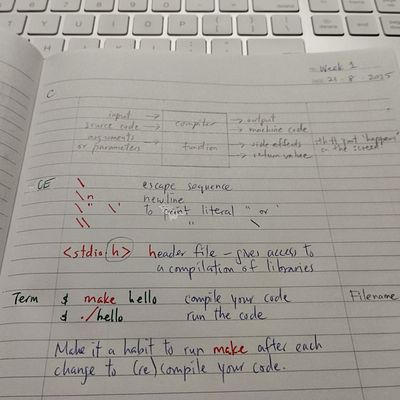 Week 1
21 - 8 2025
C
input → compiler → output
source code → → machine code
arguments → function → side effects
or parameters → return value
CE \ escape sequence
\n newline
\" \' to print literal " or '
\\ " \
<stdio.h> header file - gives access to
a compilation of libraries
Term $ make hello compile your code Filename
$ ./hello run the code
Make it a habit to run make after each
change to (re)compile your code.